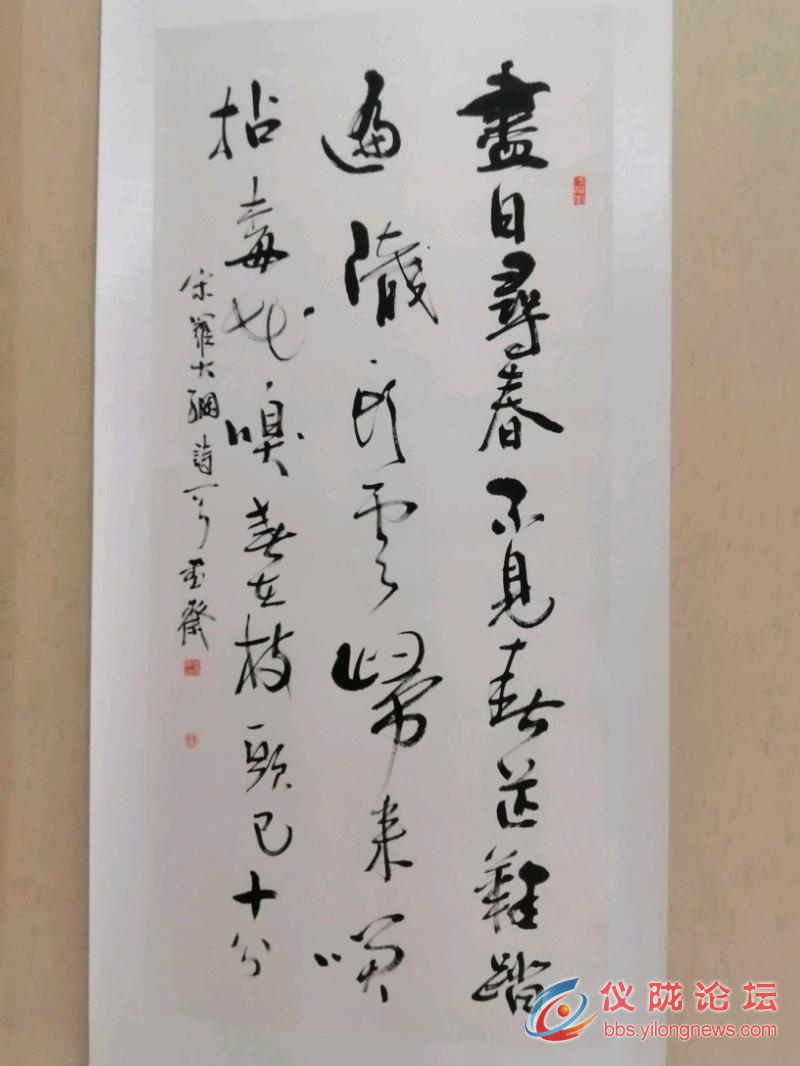 盡日尋春不見春芒鞋踏
遍隴頭雲歸來笑
拈梅花嗅春在枝頭已十分
宋羅大綱詩一首
仪陇论坛
bbs.yilongnews.com